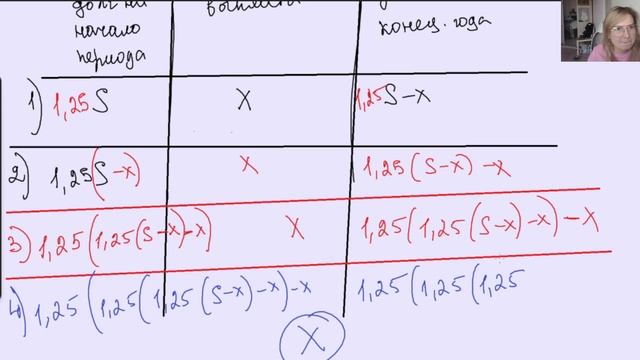 долг на
начало
периода
выплата
конец. года
1) 1,25S X 1,25S-x
2) 1,25(S-x) X 1,25(S-x)-x
3) 1,25(1,25(S-x)-x) X 1,25(1,25(S-x)-x)-x
4) 1,25(1,25(1,25(S-x)-x)-x 1,25(1,25(1,25
X